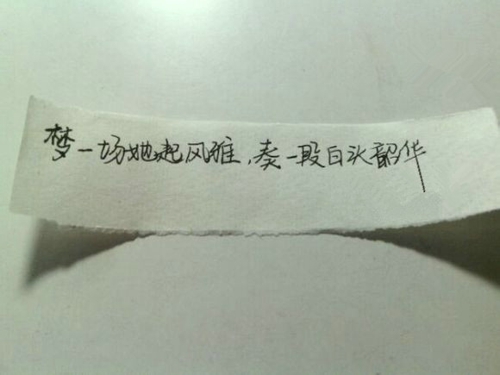 梦一场她起风雅,奏一段白头韶华